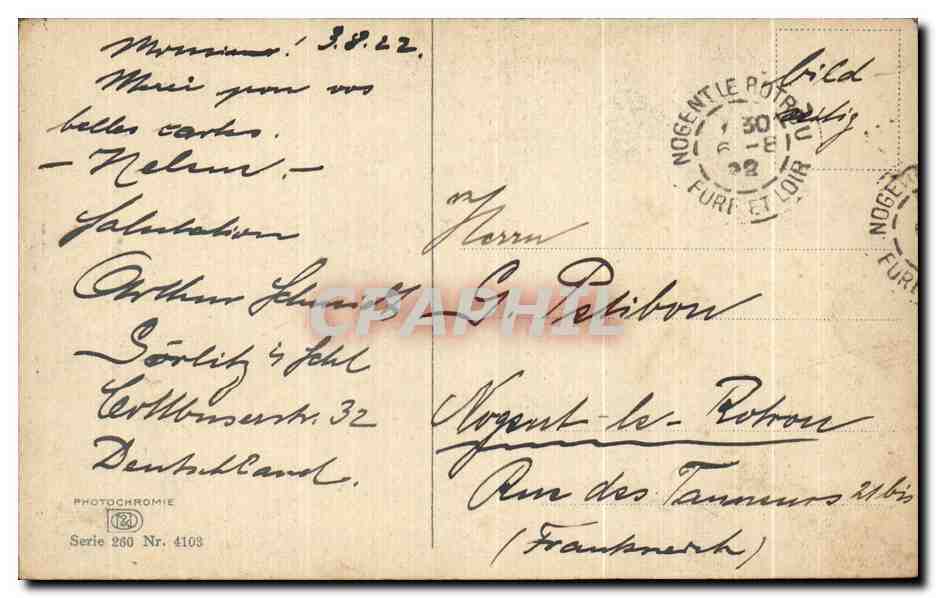 Monsieur! 3.8.22.
Merci pour vos
belles cartes.
Salutation
Arthur Schmidt
Görlitz i/ Schl
Cottbuserstr. 32
Deutschland.
PHOTOCHROMIE
Serie 260 Nr. 4103
bild-
seitig
NOGENT LE ROTROU
30
6 -8
22
EURE ET LOIR
NOGEN
EURE
Herrn
G. Petibon
Nogent-le-Rotrou
Rue des Tanneurs 21 bis
(Frankreich)
CPAPHIL